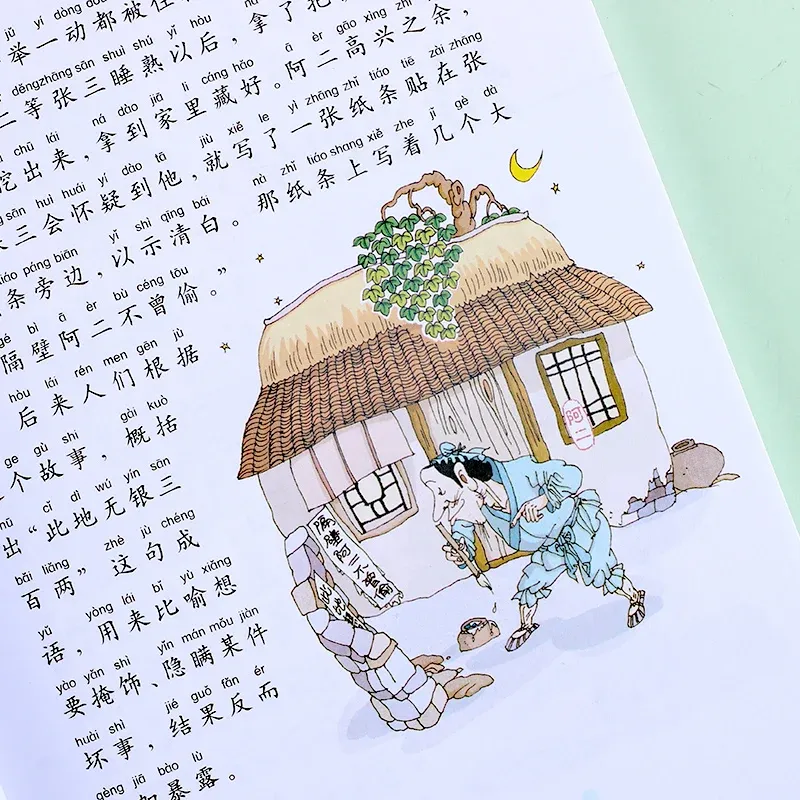 jǔ yí dòng dōu bèi
举一动都被
děngzhāng sān shuì shú yǐ hòu ná
二等张三睡熟以后，拿了把
chū lái ná dào jiā li cáng hǎo ā èr gāo xìng zhī yú
挖出来，拿到家里藏好。阿二高兴之余，
sān huì huái yí dào tā jiù xiě le yì zhāng zhǐ tiáo tiē zài zhāng
三会怀疑到他，就写了一张纸条贴在张
páng biān yǐ shì qīng bái nà zhǐ tiáo shang xiě zhe jǐ gè dà
条旁边，以示清白。那纸条上写着几个大
gé bì ā èr bù céng tōu
隔壁阿二不曾偷。”
hòu lái rén men gēn jù
后来人们根据
ge gù shi gài kuò
个故事，概括
cǐ dì wú yín sān
出“此地无银三
bǎi liǎng zhè jù chéng
百两”这句成
yǔ yòng lái bǐ yù xiǎng
语，用来比喻想
yào yǎn shì yǐn mán mǒu jiàn
要掩饰、隐瞒某件
huài shì jié guǒ fǎn ér
坏事，结果反而
gèng jiā bào lù
加暴露。
阿二
隔壁阿二不曾偷
此地